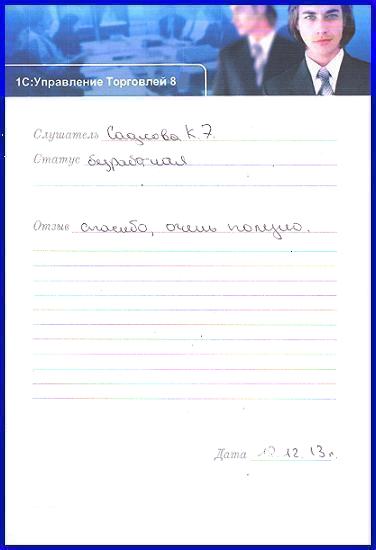 1С:Управление Торговлей 8
Слушатель К.
Статус безработная
Отзыв спасибо, очень полезно.
Дата .12.13г.